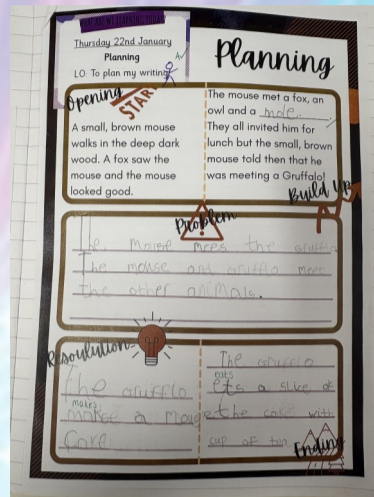 WHAT ARE WE LEARNING TODAY?
Thursday 22nd January
Planning
LO. To plan my writing
Planning
Opening
START
A small, brown mouse
walks in the deep dark
wood. A fox saw the
mouse and the mouse
looked good.
The mouse met a fox, an
owl and a mole.
They all invited him for
lunch but the small, brown
mouse told then that he
was meeting a Gruffalo!
Build Up
Problem
The mouse mees the grufflo
The mouse and grufflo meet
the other animals.
Resoulution
The grufflo
makes
makee a mouse
Cake
The gruffalo
eats
ets a slice of
the cake with
cup of tea
Ending